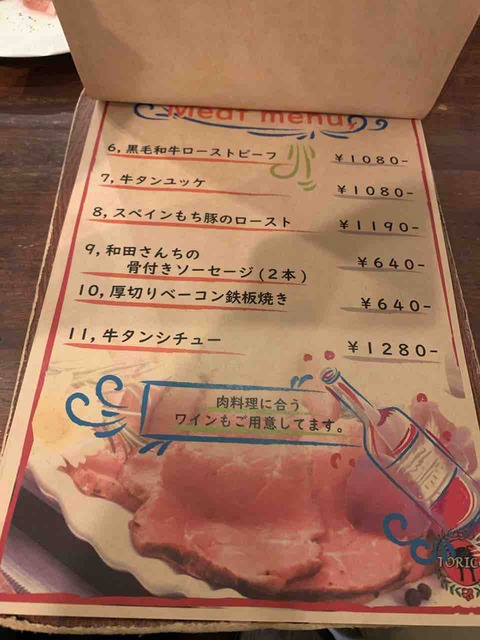 Meat menu
6, 黒毛和牛ローストビーフ ¥1080-
7, 牛タンユッケ ¥1080-
8, スペインもち豚のロースト ¥1190-
9, 和田さんちの
骨付きソーセージ(2本) ¥640-
10, 厚切りベーコン鉄板焼き ¥640-
11, 牛タンシチュー ¥1280-
肉料理に合う
ワインもご用意してます。